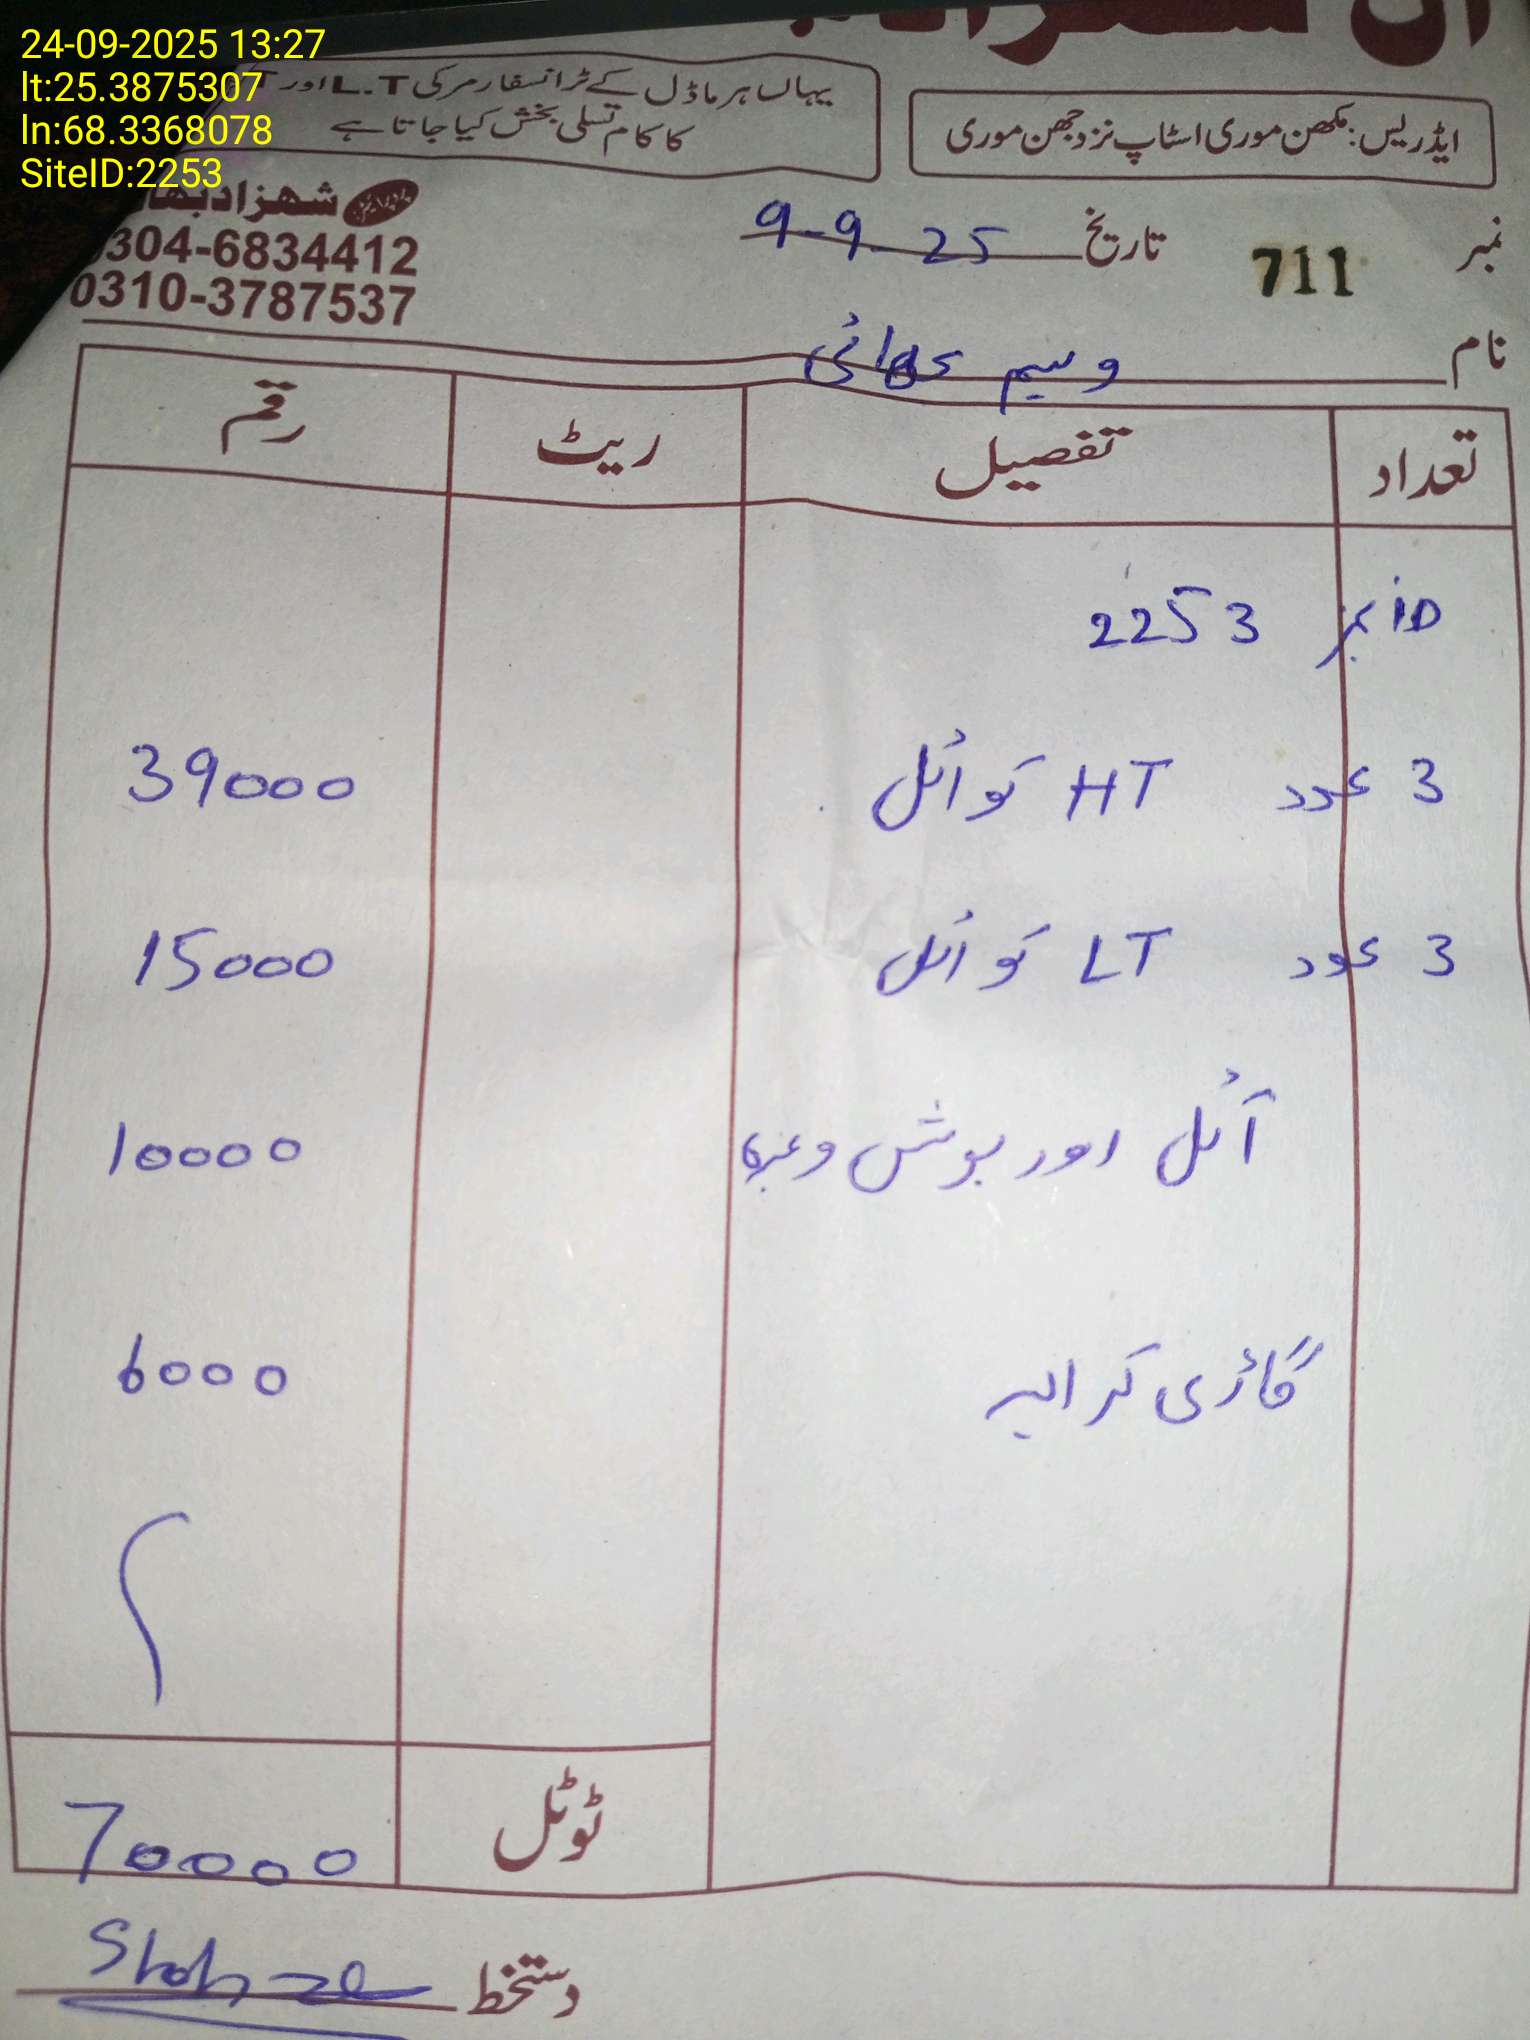 24-09-2025 13:27
lt:25.3875307
ln:68.3368078
SiteID:2253
یہاں ہر ماڈل کے ٹرانسفارمر کی L.T اور
کا کام تسلی بخش کیا جاتا ہے
ایڈریس: مکھن موری اسٹاپ نزد جھن موری
شہزاد بھا
0304-6834412
0310-3787537
نمبر 711 تاریخ 9-9-25
نام وسیم بھائی
تعداد تفصیل ریٹ رقم
iD نمبر 2253
3 عدد HT کوائل 39000
3 عدد LT کوائل 15000
آئل اور بوش وغیرہ 10000
گاڑی کرایہ 6000
ٹوٹل 70000
دستخط